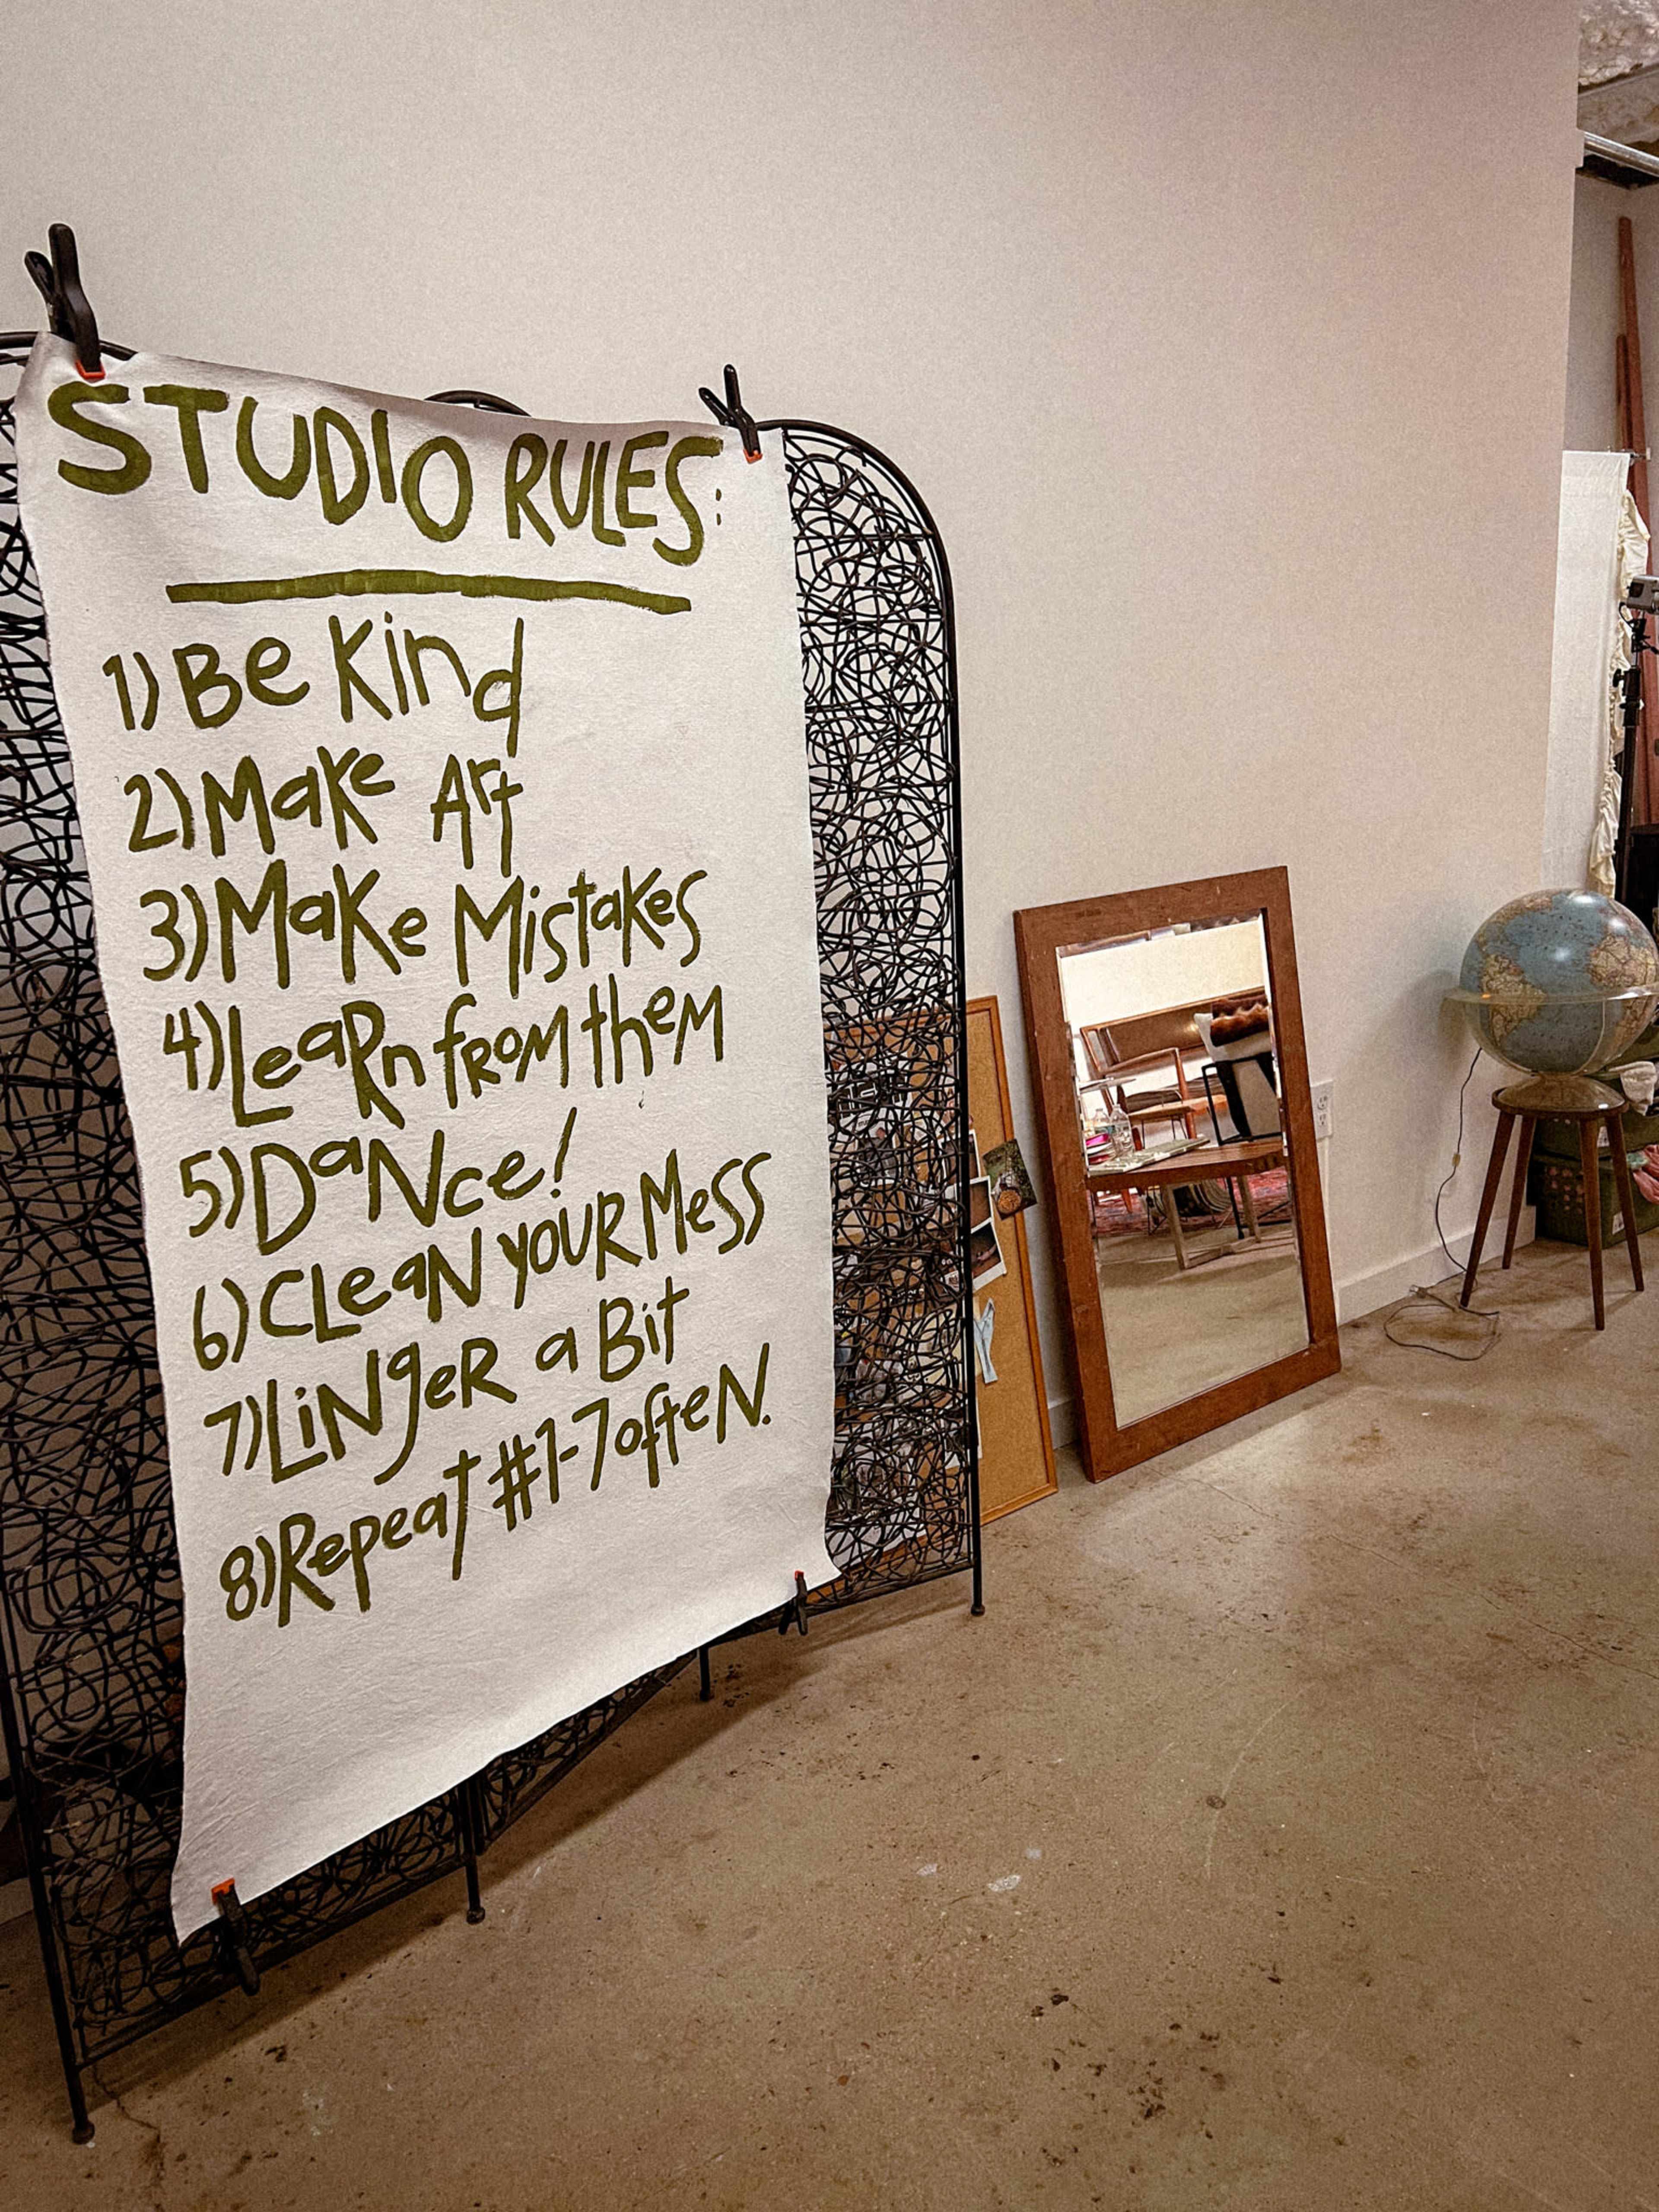 STUDIO RULES:
1) Be Kind
2) Make Art
3) Make Mistakes
4) Learn from them
5) Dance!
6) Clean your Mess
7) Linger a Bit
8) Repeat #1-7 often.